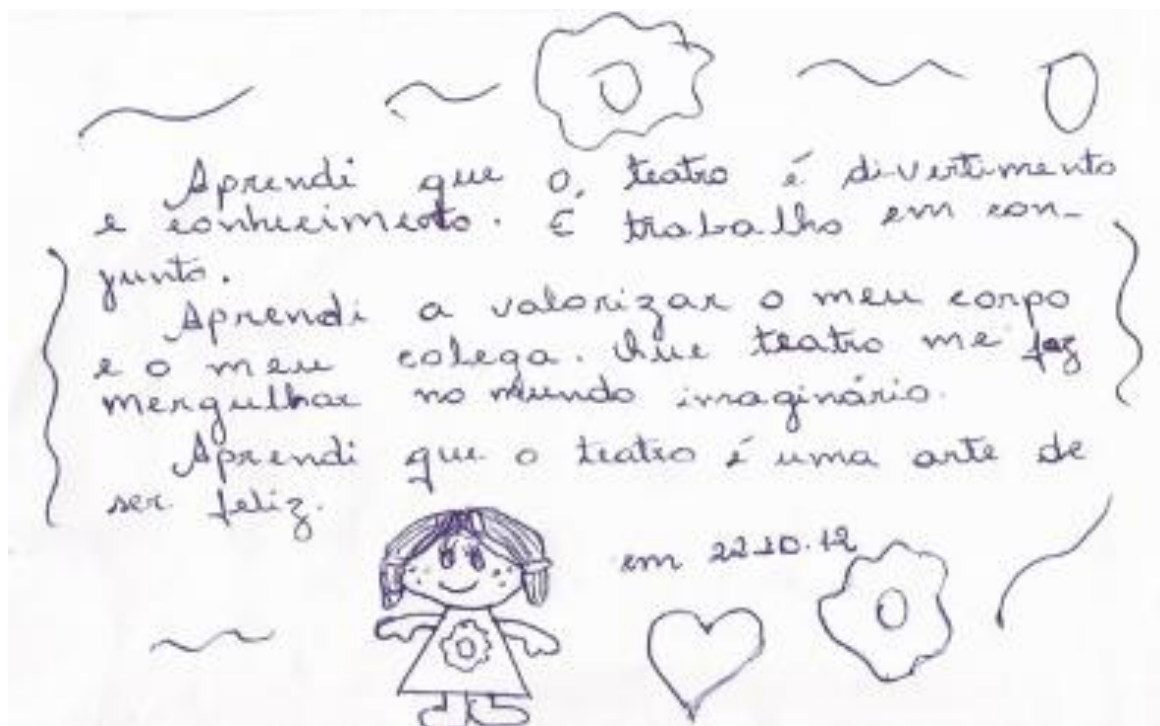 Aprendi que o, teatro é divertimento
e conhecimento. É trabalho em con-
junto.
Aprendi a valorizar o meu corpo
e o meu colega. Que teatro me faz
mergulhar no mundo imaginário.
Aprendi que o teatro é uma arte de
ser feliz.
em 22.10.12